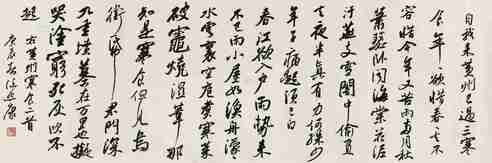 自我来黄州已過三寒
食年〻欲惜春〻去不
容惜今年又苦雨兩月秋
蕭瑟卧聞海棠花泥
汙燕支雪闇中偷負
去夜半真有力何殊少
年子病起須已白
春江欲入户雨勢来
不已雨小屋如漁舟濛〻
水雲裏空庖煮寒菜
破竈燒溼葦那
知是寒食但見烏
銜帋君門深
九重墳墓在万里也擬
哭塗窮死灰吹不
起 右黄州寒食二首